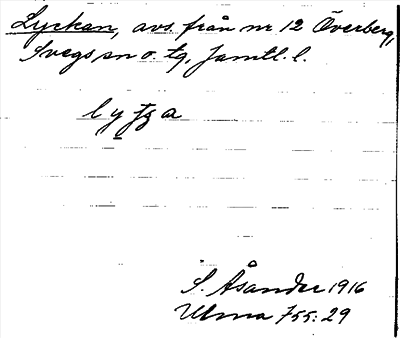 Lyckan, avs. från nr 12 Överberg,
Svegs sn o. tg, Jämtl. l.
S. Åsander 1916
Ulma 755:29